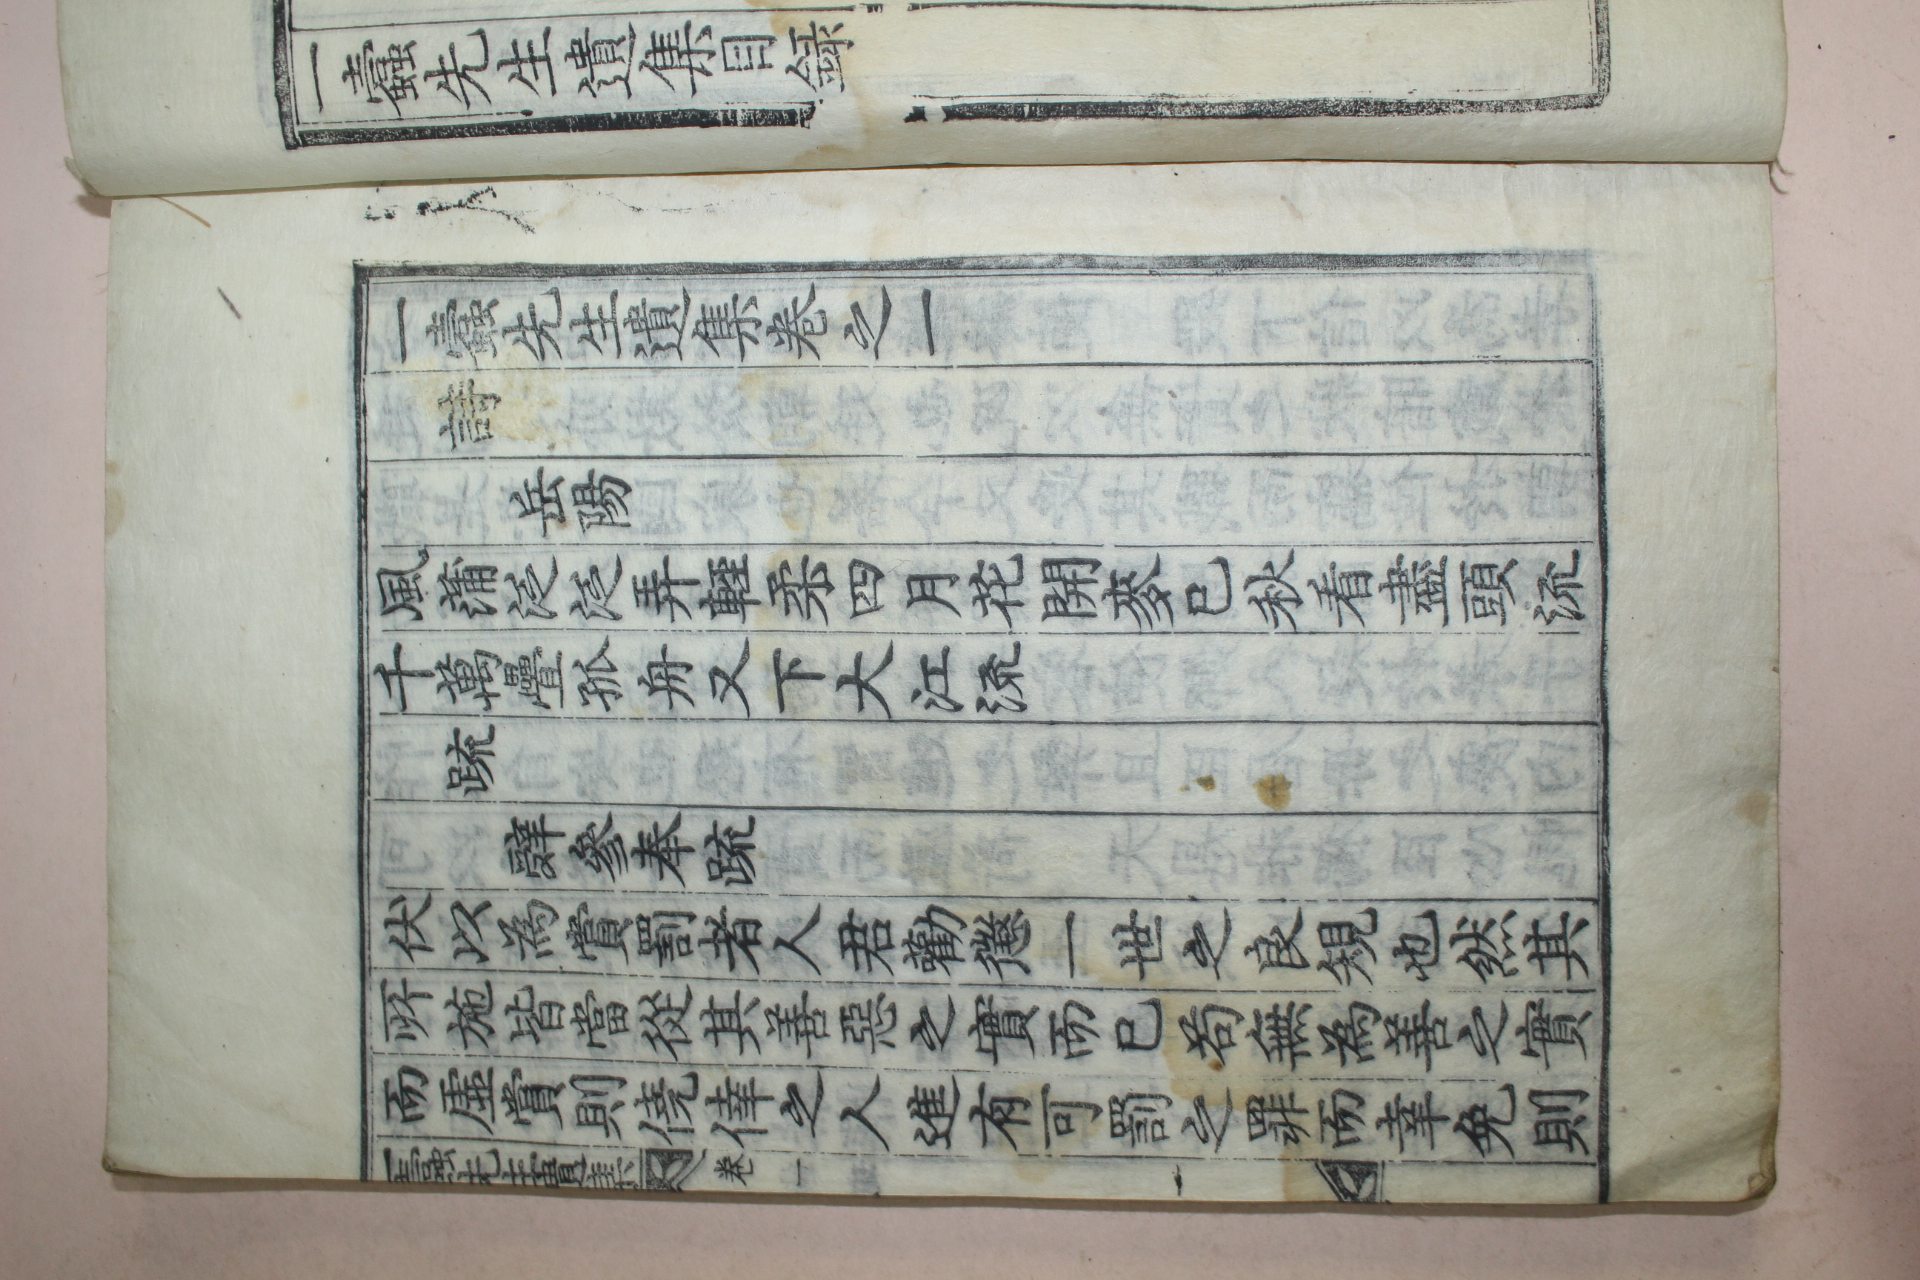 一蠹先生遺集目錄
一蠹先生遺集卷之一
詩
岳陽
風蒲泛泛弄輕柔四月花開麥已秋看盡頭流
千萬疊孤舟又下大江流
疏
辭參奉疏
伏以爲賞罰者人君勸懲一世之良規也然其
所施皆當從其善惡之實而已苟無爲善之實
而虛賞則僥倖之人進有可罰之罪而幸免則
一蠹先生遺集 卷一 一